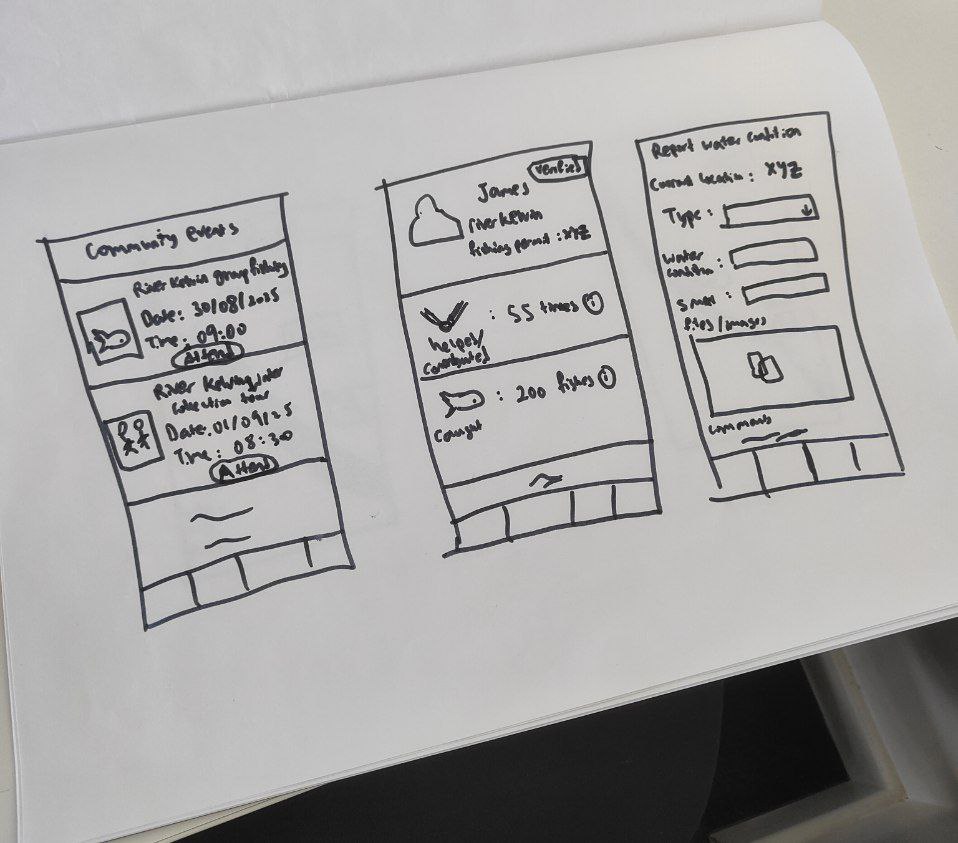 Community Events
River Kelvin group fishing
Date: 30/08/2025
Time: 09:00
Attend
River Kelvin
collection tour
Date: 01/09/25
Time: 08:30
Attend
Verified
James
river Kelvin
fishing permit : XYZ
: 55 times i
helped/
Contributed
: 200 fishes i
Caught
Report water condition
Current location : XYZ
Type :
water
condition :
smell :
files/images
comments